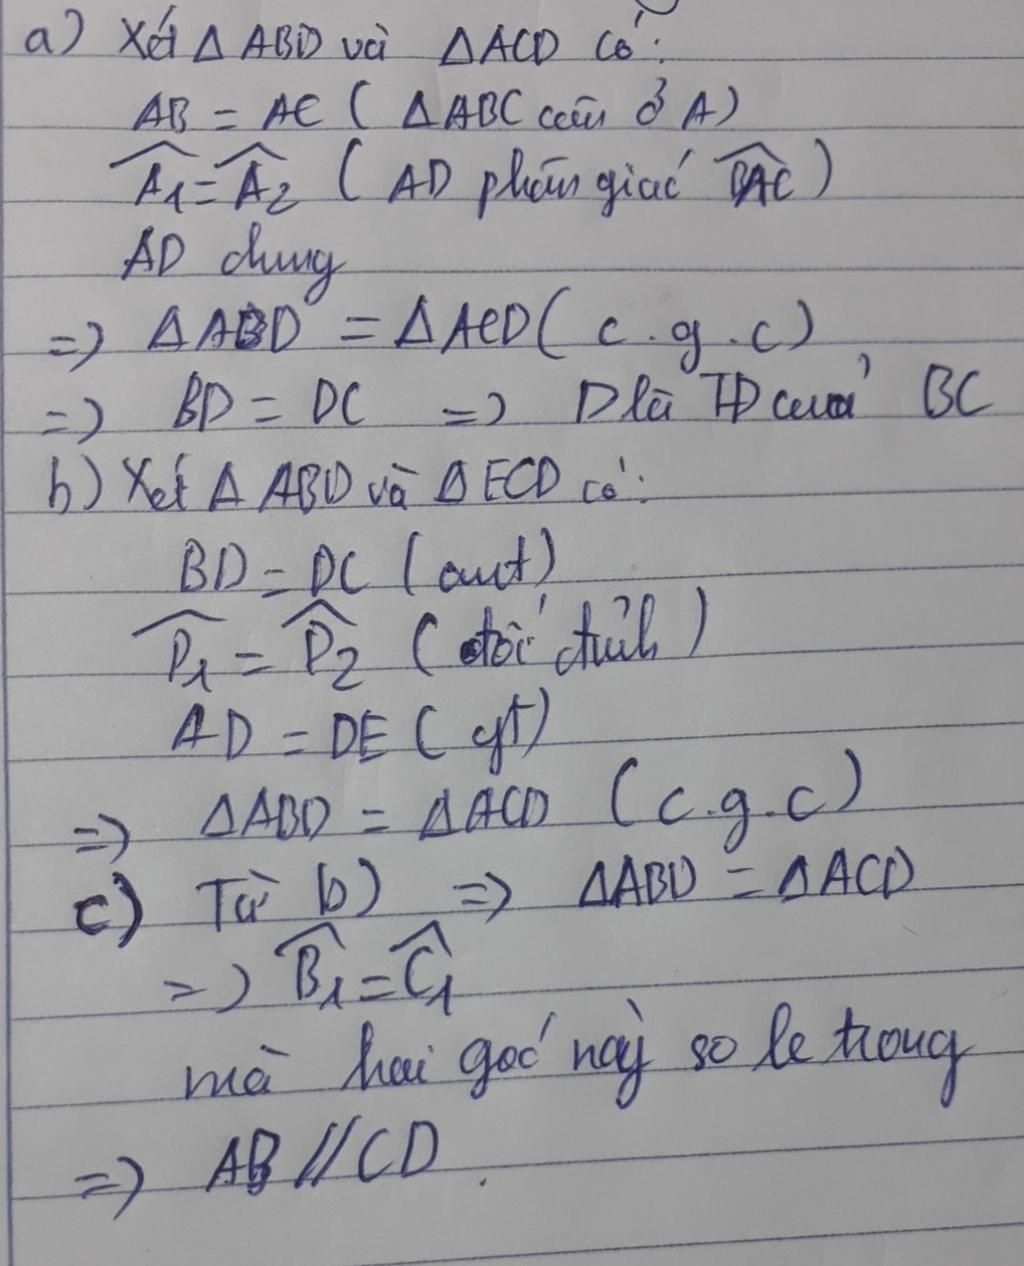 a) Xét Δ ABD và ΔACD có:
AB = AC ( ΔABC cân ở A)
\widehat{A_1} = \widehat{A_2} ( AD phân giác \widehat{BAC} )
AD chung
=> ΔABD = ΔACD ( c.g.c)
=> BD = DC => D là TĐ của BC
b) Xét Δ ABD và Δ ECD có:
BD = DC (cmt)
\widehat{D_1} = \widehat{D_2} ( đối đỉnh )
AD = DE ( gt)
=> ΔABD = ΔACD (c.g.c)
c) Từ b) => ΔABD = ΔACD
=> \widehat{B_1} = \widehat{C_1}
mà hai góc này so le trong
=> AB // CD.